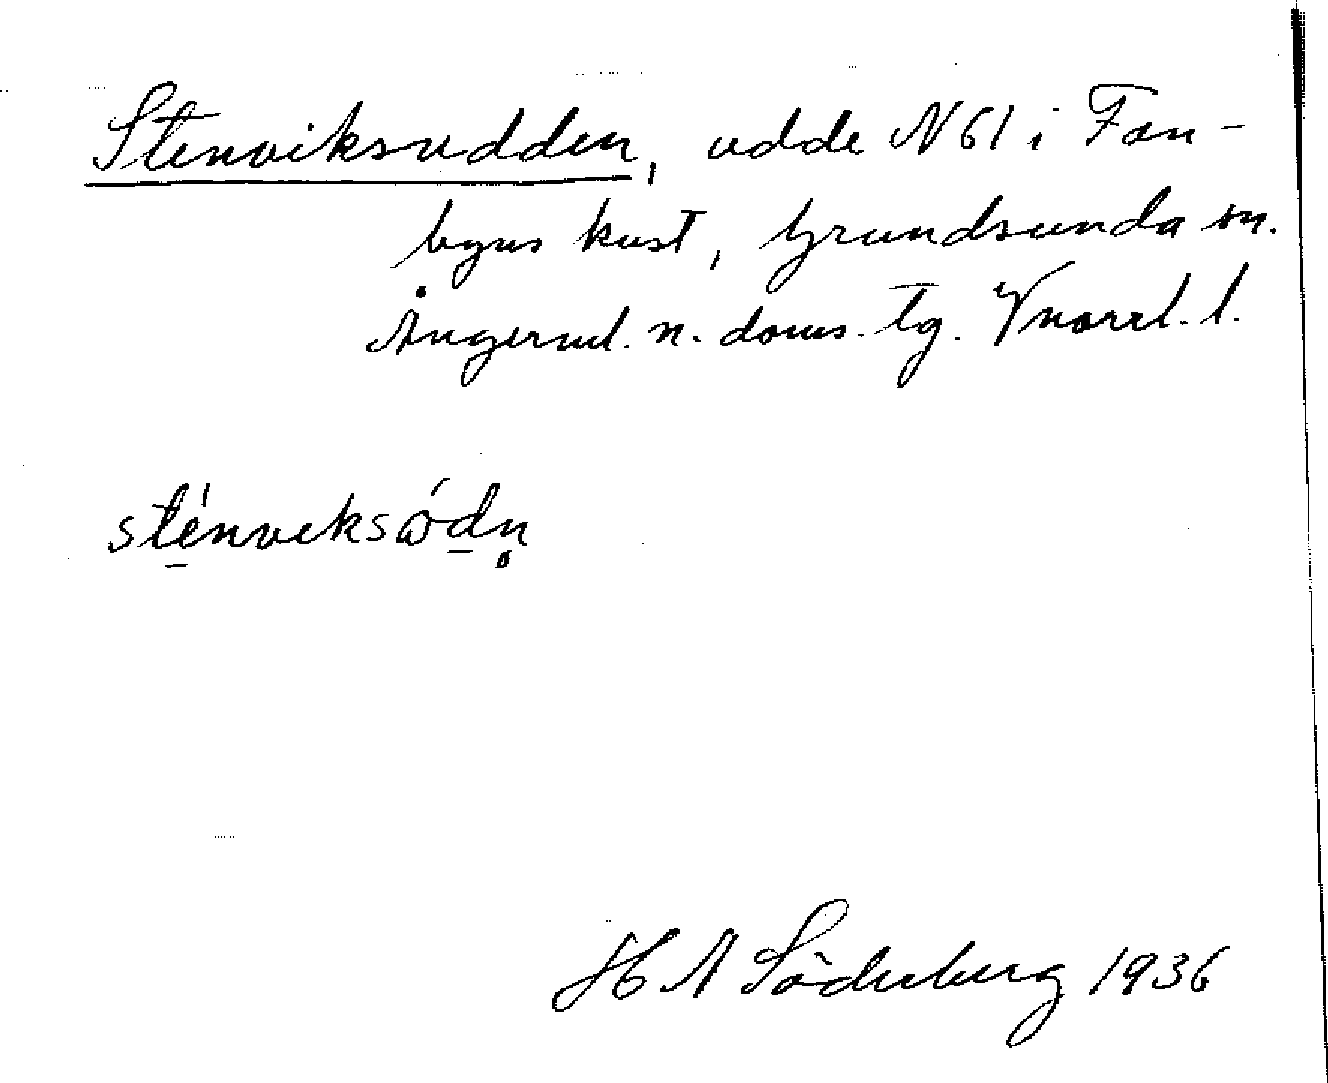 Stenviksudden, udde N61 i Fan-
byns kust, Grundsunda sn.
Ångerml. n. doms. tg. Vnorrl. l.
sténveksó̲dṇ
H A Söderberg 1936